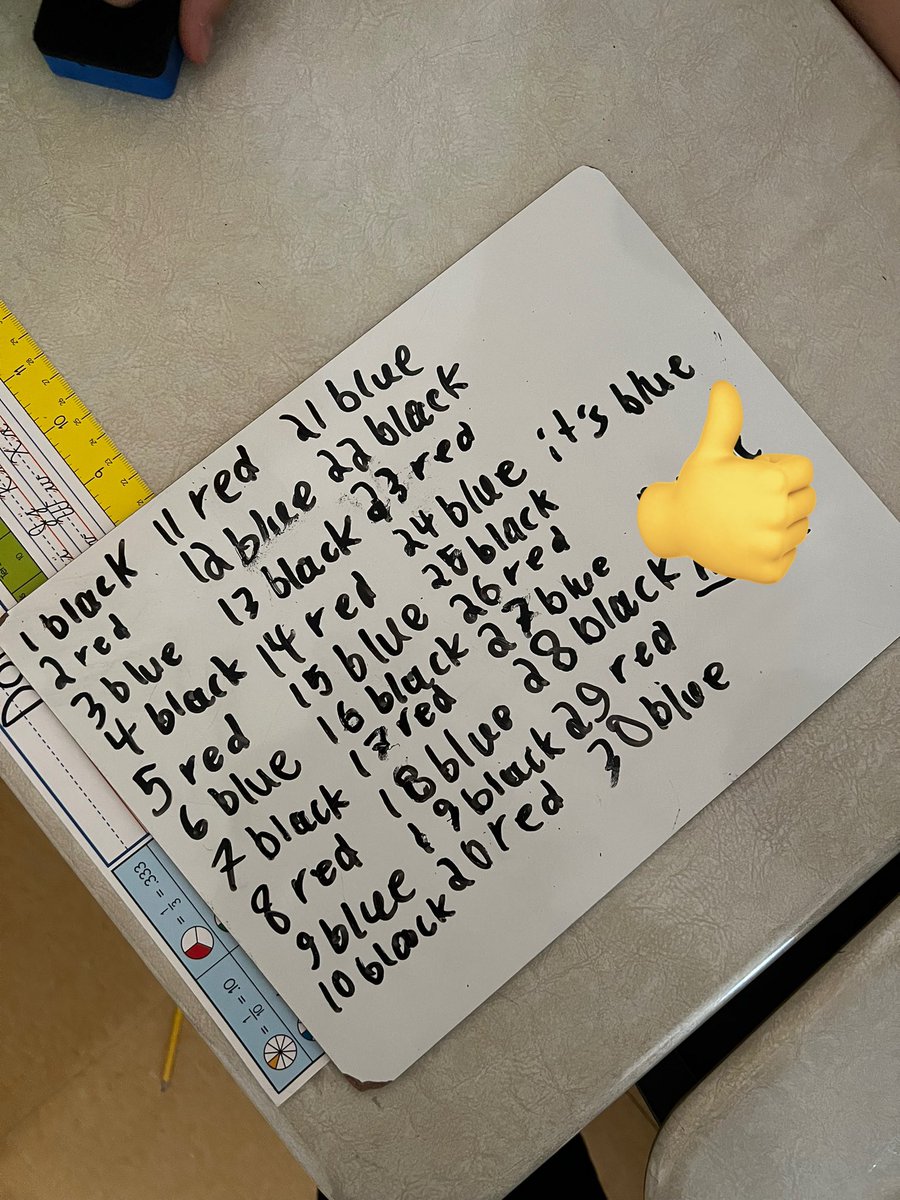 1 black 11 red 21 blue
2 red 12 blue 22 black
3 blue 13 black 23 red
4 black 14 red 24 blue it's blue
5 red 15 blue 25 black
6 blue 16 black 26 red
7 black 17 red 27 blue
8 red 18 blue 28 black
9 blue 19 black 29 red
10 black 20 red 30 blue
1/3 = .333
1/10 = .10
10
11